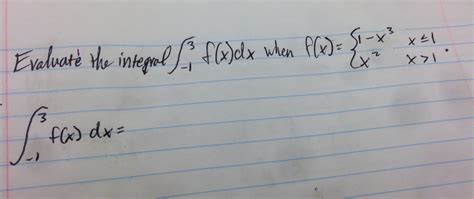 Evaluate the integral ∫₋₁³ f(x)dx when f(x)= {1-x³ x≤1
x² x>1.
∫₋₁³ f(x) dx=